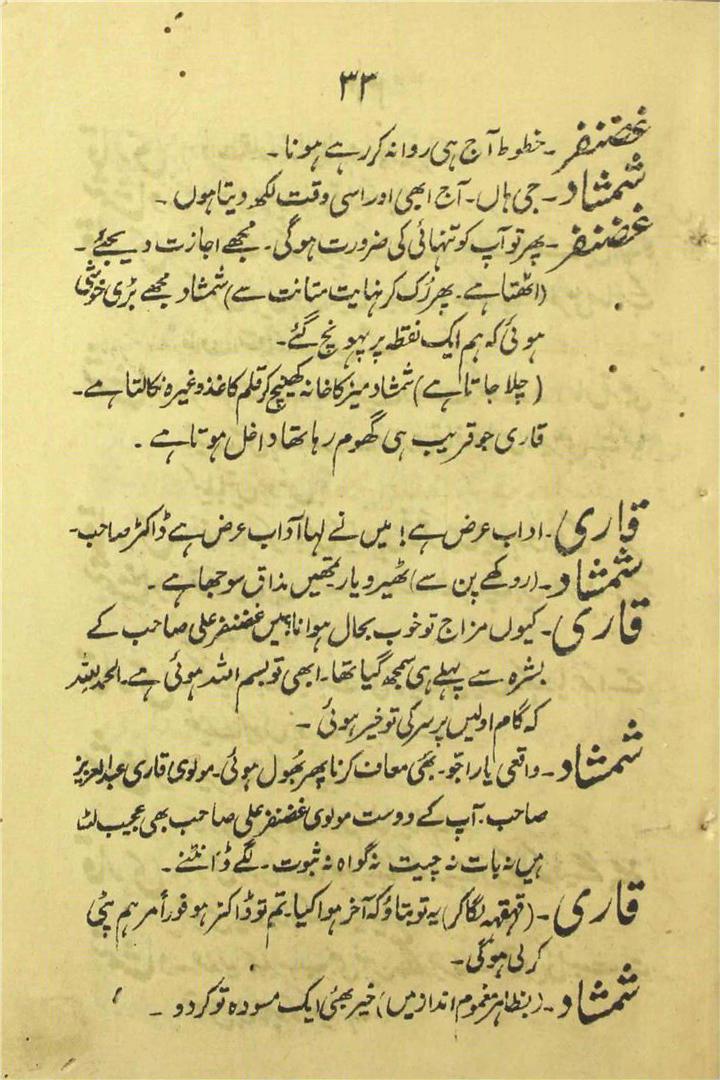 ۳۳
غضنفر ۔ خطوط آج ہی روانہ کر رہے ہو نا ۔
شمشاد ۔ جی ہاں ۔ آج ابھی اور اسی وقت لکھ دیتا ہوں ۔
غضنفر ۔ پھر تو آپ کو تنہائی کی ضرورت ہوگی ۔ مجھے اجازت دیجئے ۔
(اٹھتا ہے ۔ پھر رُک کر نہایت متانت سے) شمشاد مجھے بڑی خوشی
ہوئی کہ ہم ایک نقطہ پر پہونچ گئے ۔
(چلا جاتا ہے) شمشاد میز کا خانہ کھینچ کر قلم کاغذ وغیرہ نکالتا ہے ۔
قاری جو قریب ہی گھوم رہا تھا داخل ہوتا ہے ۔
قاری ۔ اداب عرض ہے! میں نے کہا آداب عرض ہے ڈاکٹر صاحب ۔
شمشاد ۔ (روکھے پن سے) ٹھیرو یار تمھیں مذاق سوجھا ہے ۔
قاری ۔ کیوں مزاج تو خوب بحال ہوا نا؟ میں غضنفر علی صاحب کے
بشرہ سے پہلے ہی سمجھ گیا تھا ۔ ابھی تو بسم اللہ ہوئی ہے ۔ الحمد للہ
کہ گام اولیں پر سر کی تو خیر ہوئی ۔
شمشاد ۔ واقعی یار اجّو ۔ بھئی معاف کرنا پھر بھُول ہوئی ۔ مولوی قاری عبدالعزیز
صاحب ۔ آپ کے دوست مولوی غضنفر علی صاحب بھی عجیب
ہیں نہ بات نہ چیت نہ گواہ نہ ثبوت ۔ لگے ڈانٹنے ۔
قاری ۔ (قہقہہ لگا کر) یہ تو بتاؤ کہ آخر ہوا کیا ۔ تم تو ڈاکٹر ہو فوراً مرہم پٹی
کر لی ہوگی ۔
شمشاد ۔ (بظاہر مغموم انداز میں) خیر بھئی ایک مسودہ تو کر دو ۔